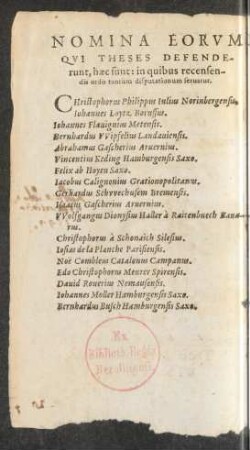 NOMINA EORVM
QVI THESES DEFENDE-
runt, hæc sunt: in quibus recensen-
dis ordo tantùm disputationum seruatur.
Christophorus Philippus Iulius Norinbergensis.
Iohannes Loytz, Borussus.
Iohannes Flauignius Metensis.
Bernhardus VVipfelius Landauiensis.
Abrahamus Gascherius Aruernius.
Vincentius Erding Hamburgensis Saxo.
Felix ab Hoyen Saxo.
Iacobus Calignonius Grationopolitanus.
Gerhardus Schroechusem Bremensis.
Isaacus Gascherius Aruernius.
VVolfgangus Dionysius Haller à Raitenbuech Baua-
rus.
Christophorus à Schonaich Silesius.
Iosias de la Planche Parisiensis.
Noë Comblem Catalanus Campanus.
Edo Christophorus Meurer Spirensis.
Dauid Rouerius Nemausensis.
Iohannes Mollet Hamburgensis Saxo.
Bernhardus Busch Hamburgensis Saxo.
Ex
Biblioth. Regia
Berolinensi.